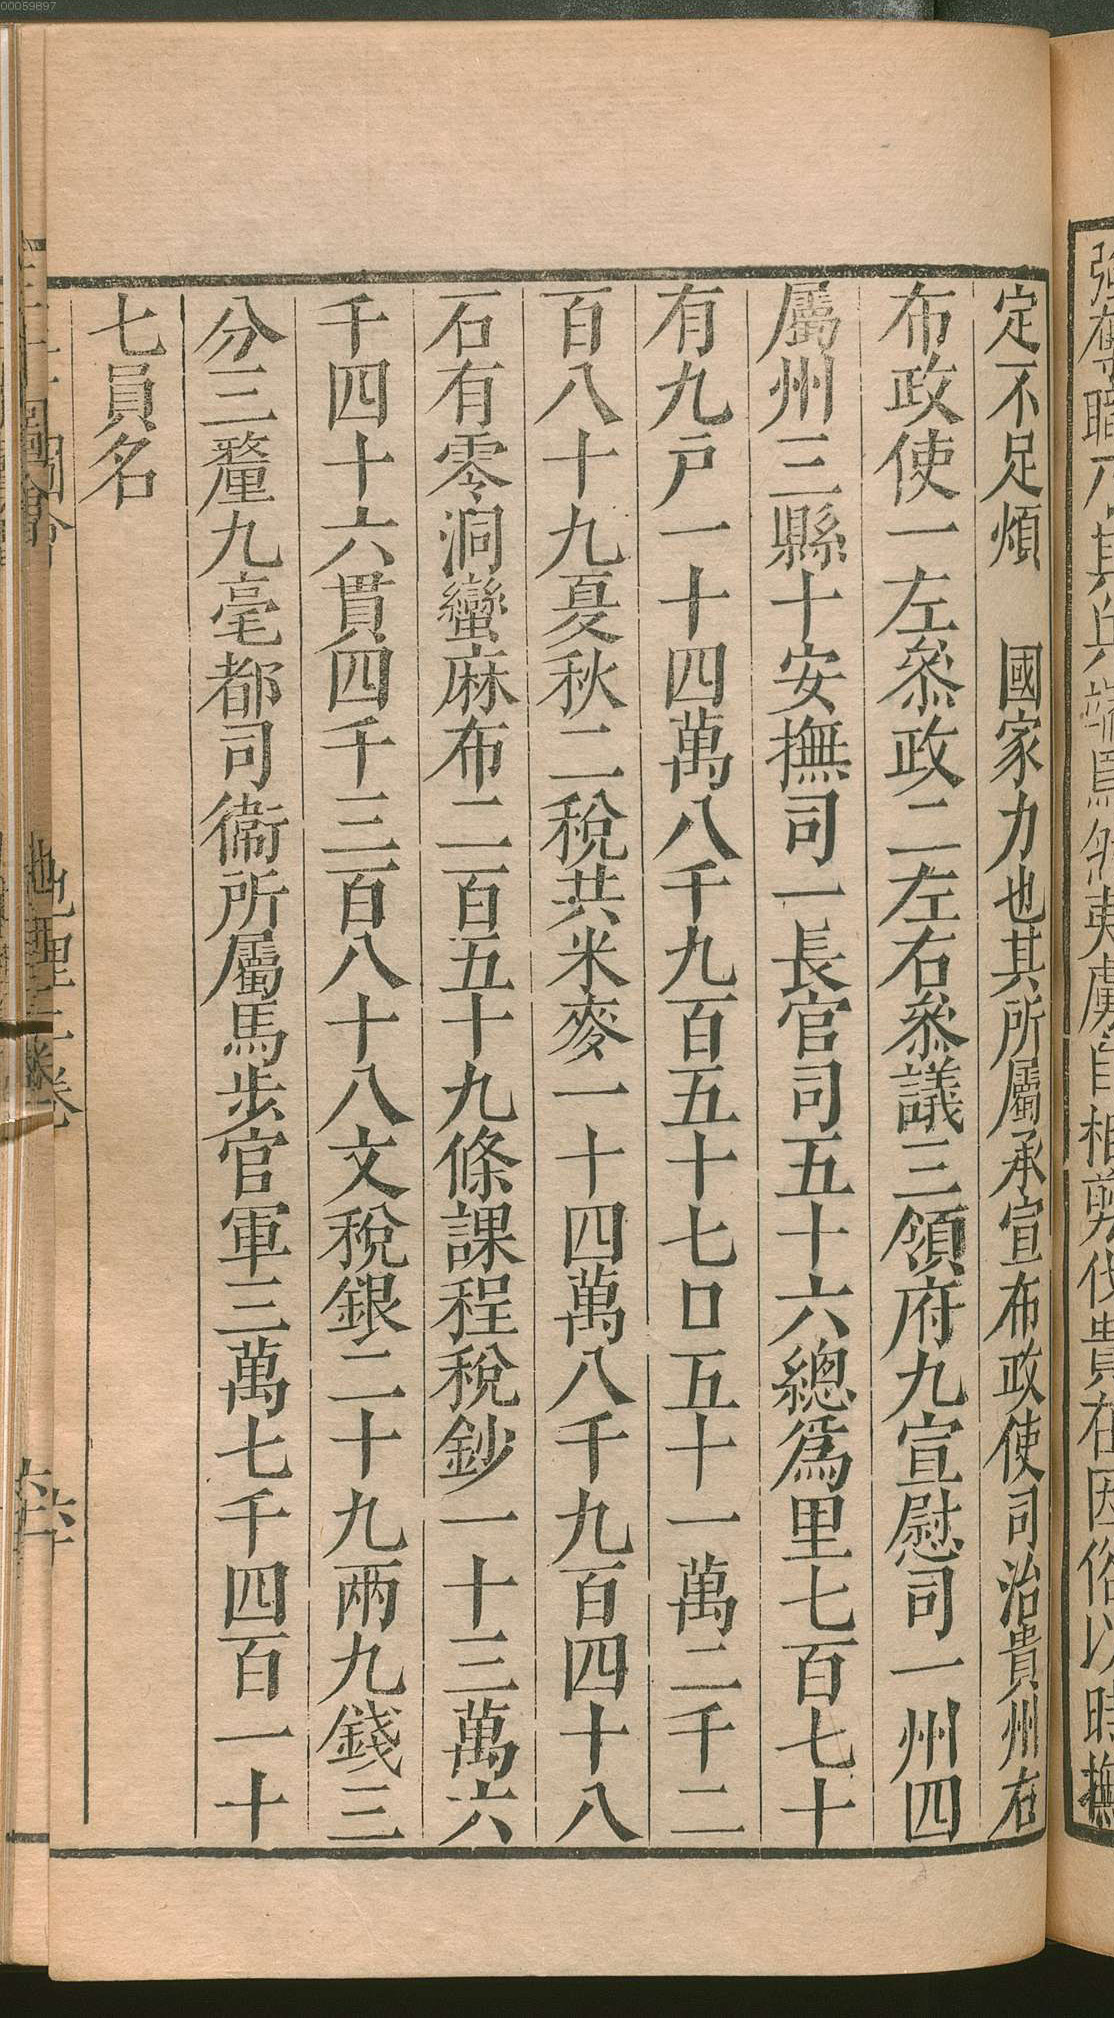 強奪職介其兵端焉然夷虜自相剪伐貴在因俗以時撫
定不足煩　國家力也其所屬承宣布政使司治貴州右
布政使一左叅政二左右叅議三領府九宣慰司一州四
屬州三縣十安撫司一長官司五十六總爲里七百七十
有九戶一十四萬八千九百五十七口五十一萬二千二
百八十九夏秋二稅共米麥一十四萬八千九百四十八
石有零洞蠻麻布二百五十九條課程稅鈔一十三萬六
千四十六貫四千三百八十八文稅銀二十九兩九錢三
分三釐九毫都司衞所屬馬步官軍三萬七千四百一十
七員名
地理三卷
00059897